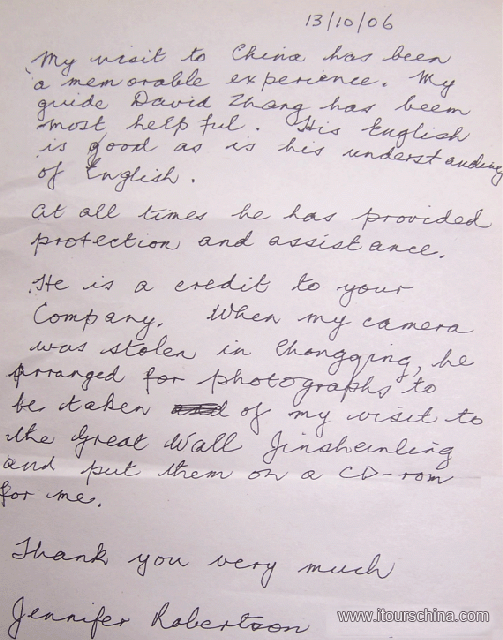 13/10/06
My visit to China has been
a memorable experience. My
guide David Zhang has beem
most help ful. His English
is good as is his understanding
of English.
At all times he has provided
protection and assistance.
He is a credit to your
Company. When my camera
was stolen in Chongqing, he
arranged for photographs to
be taken of my visit to
the Great Wall Jinshanling
and put them on a CD-rom
for me.
Thank you very much
Jennifer Robertson
www.itourschina.com